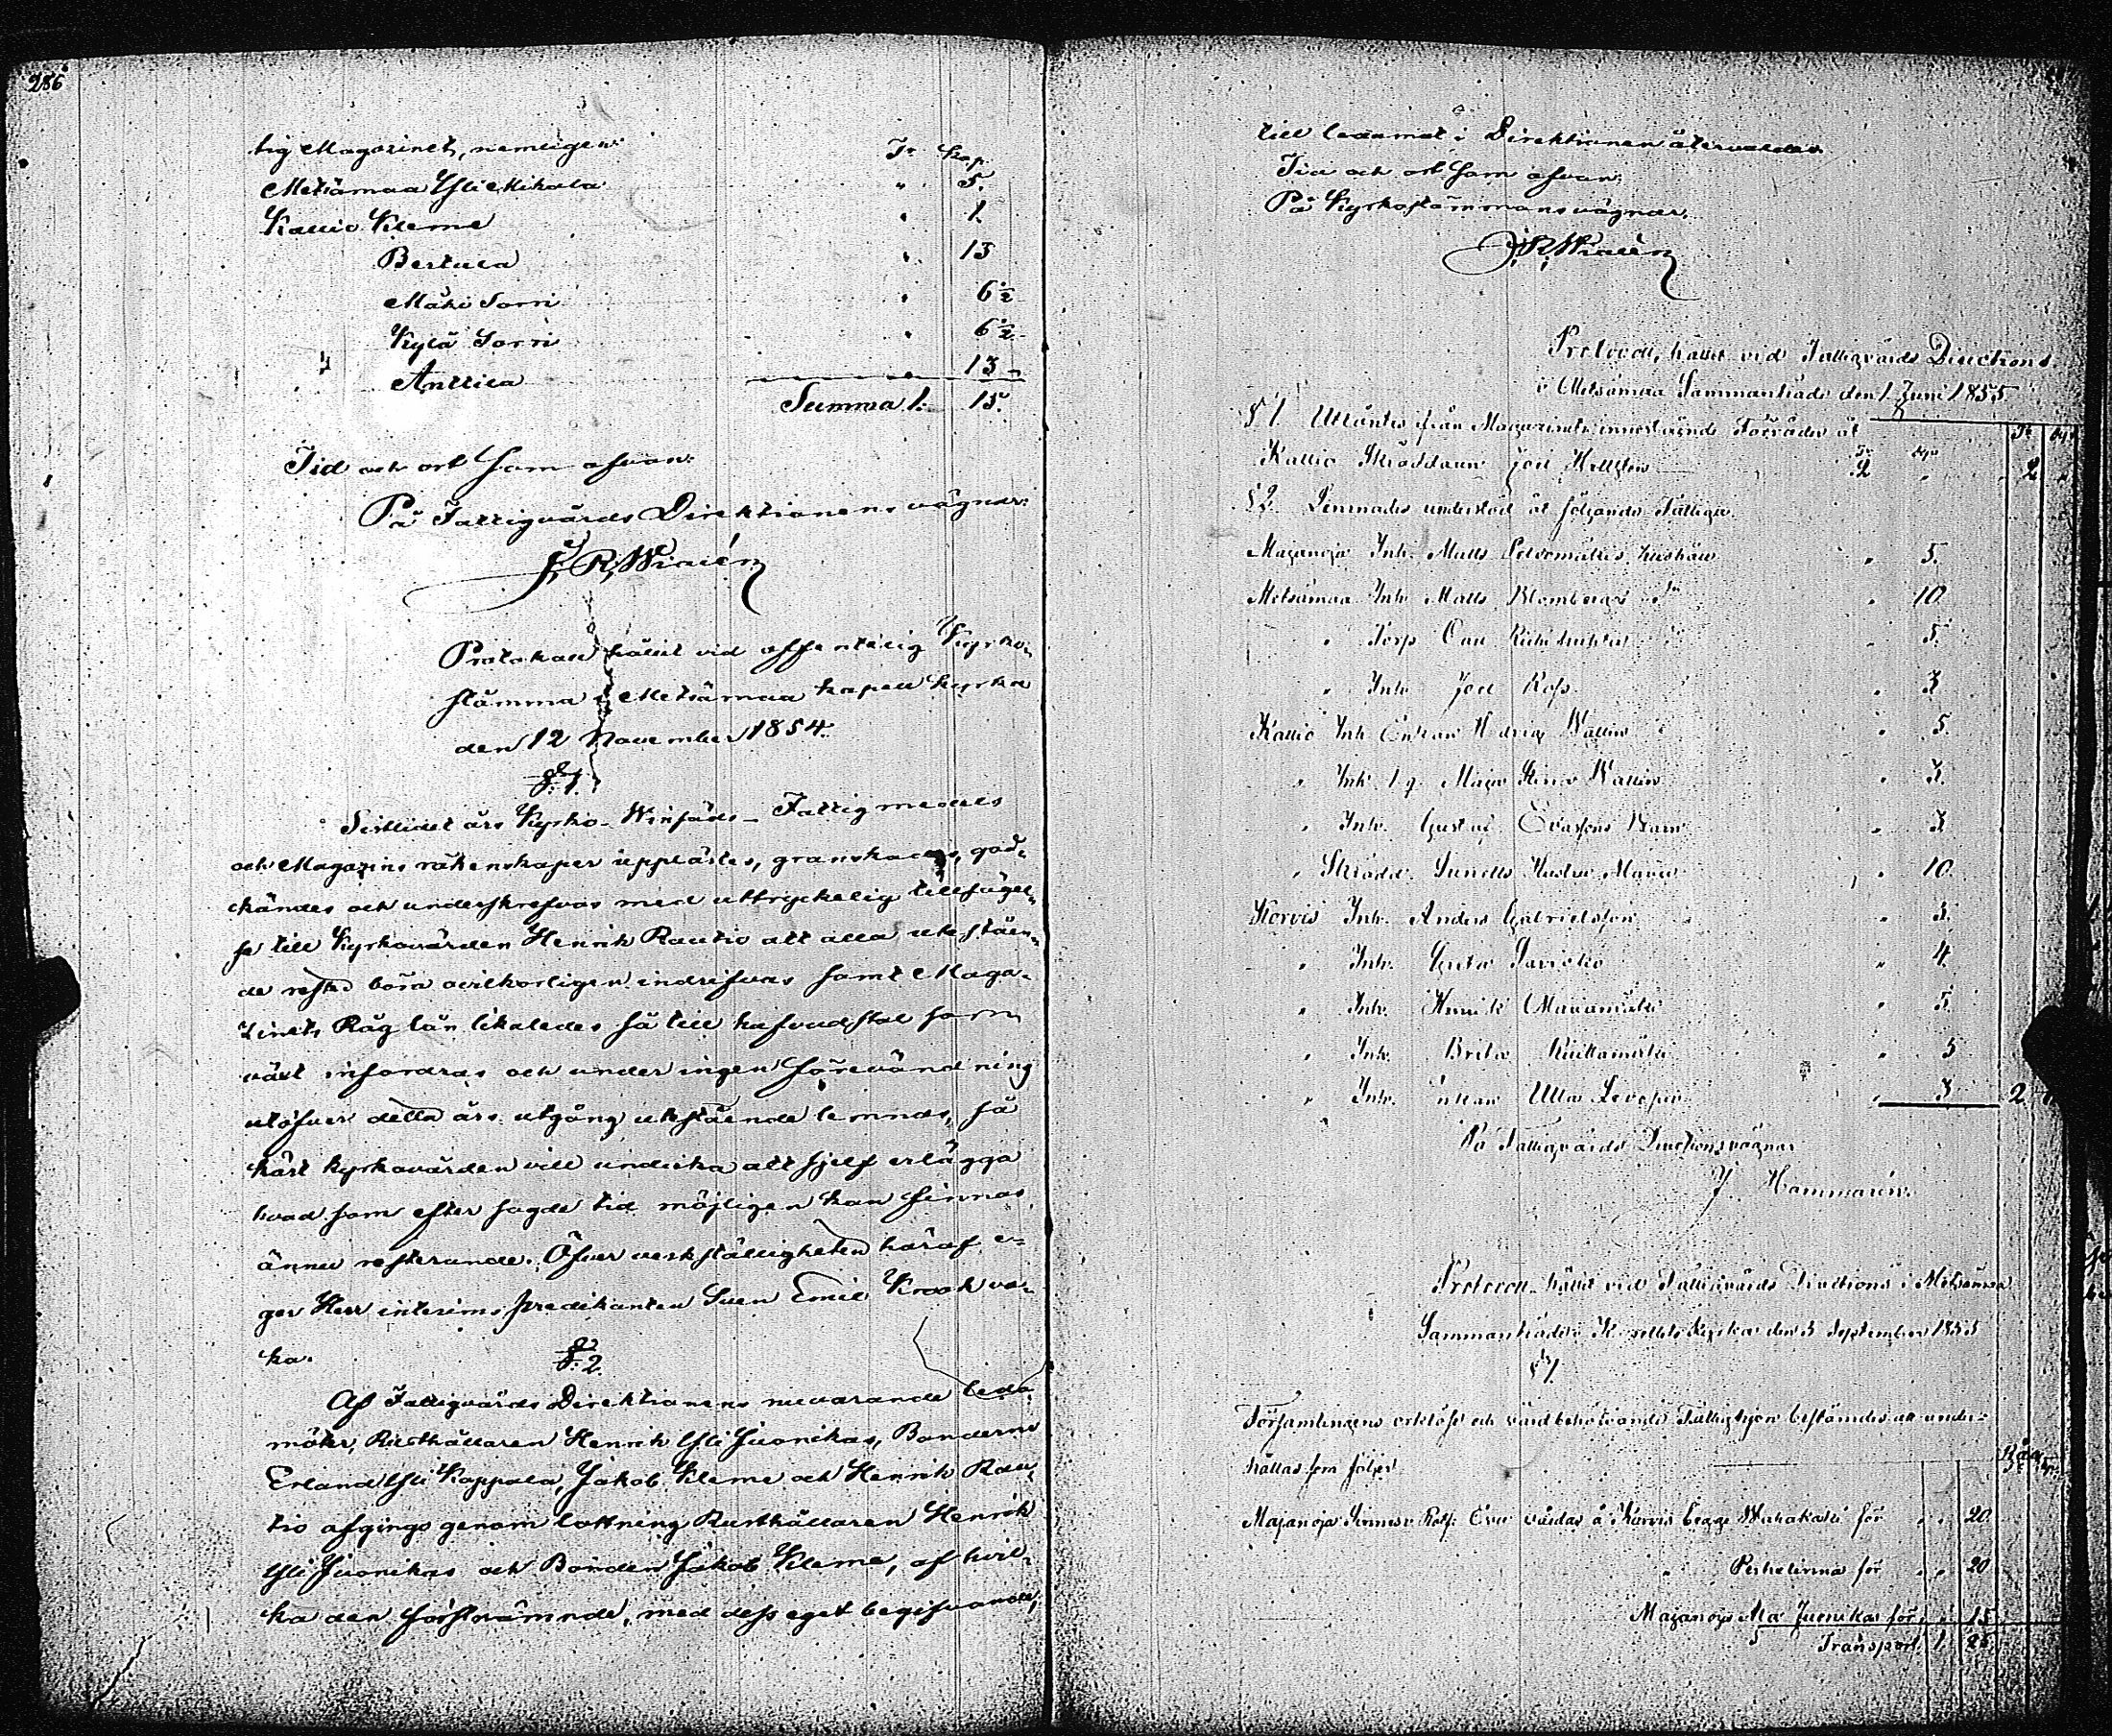 286
tig Magazinet, nemligen: Tr Kap.
Metsämaa Yli Mikola " 5.
Kallio Kleme " 1.
Bertula " 13
Mäki Sorri " 6½
Kylä Sorri " 6½
" Anttila " 13
Summa 1. 15.
Tid och ort som ofvan.
På Fattigvårds Direktionens vägnar:
F. R. Widlén
Protokoll hållit vid offentelig Kyrko-
stämma i Metsämaa kapell kyrka
den 12 November 1854.
§. 1.
Sistlidet års Kyrko- Winfäds- Fattigmedels
och Magazins räkenskaper upplästes, granskades, god-
kändes och underskrefvos med uttryckelig tillsägel-
se till Kyrkovärden Henrik Rautio att alla uteståen-
de rester böra ovilkorligen indrifvas samt Maga-
zinets Råg lån likaledes så till hufvudstol som
växt infordras och under ingen förevändning
utöfver detta års utgång utestående lemnas, så
kärt kyrkovärden vill undvika att sjelf erlägga
hvad som efter sagde tid möjligen kan finnas
ännu resterande. Öfver verkställigheten häraf e-
ger Herr interims predikanten Sven Emil Krook va-
ka.
§. 2.
Af Fattigvårds Direktionens nuvarande leda-
möter, Rusthållaren Henrik Yli Juonikas, Bönderne
Erland Yli Kappala, Jakob Kleme och Henrik Rau-
tio afgingo genom lottning Rusthållaren Henrik
Yli Juonikas och Bonden Jakob Kleme, af hvil-
ka den förstnämnde, med dess eget begifvande,
till ledamot i Direktionen återvaldes.
Tid och ort som ofvan.
På Kyrkostämmans vägnar,
F. R. Widlén
Protocoll, hållit vid Fattigvårds Directions
i Metsämaa Sammanträde den 1 Juni 1855
§ 1. Utlåntes från Magazinets innestående Förråder åt Tr kp
Kallio Skräddaren Joel Hellsten Tr 2 kp " 2 "
§ 2. Lemnades understöd åt följande Fattiga.
Majanoja Inh. Matts hustru " 5.
Metsämaa Inh. Matts Blombergs " 10
" Torp " 5.
" Inh. Joel Ross " 3
Kallio Inh. Enkan Hedvig Wallin " 5.
" Inh. Maja Wallin " 3.
" Inh. Gustaf Barn " 3
" Skrädd. Hustru Maria " 10.
Korvis Inh. Anders Gabrielsson " 3.
" Inh. " 4.
" Inh. Henrik " 5.
" Inh. Brita " 5
" Inh. enkan Ulla " 3 2
På Fattigvårds Directions vägnar
J. Hammarén.
Protocoll hållit vid Fattigvårds Directions i Metsämaa
Sammanträde i kapellets kyrka den 3 September 1855
§ 1
Församlingens orklösa och vårdbehöfvande Fattighjon bestämdes att under-
hållas som följer Råg Tr kp
Majanoja Eva vårdas å Korvis för " " 20
" Perhelinna för " " 20
Majanoja Ala Juonikas för " 15
Transport 1 25